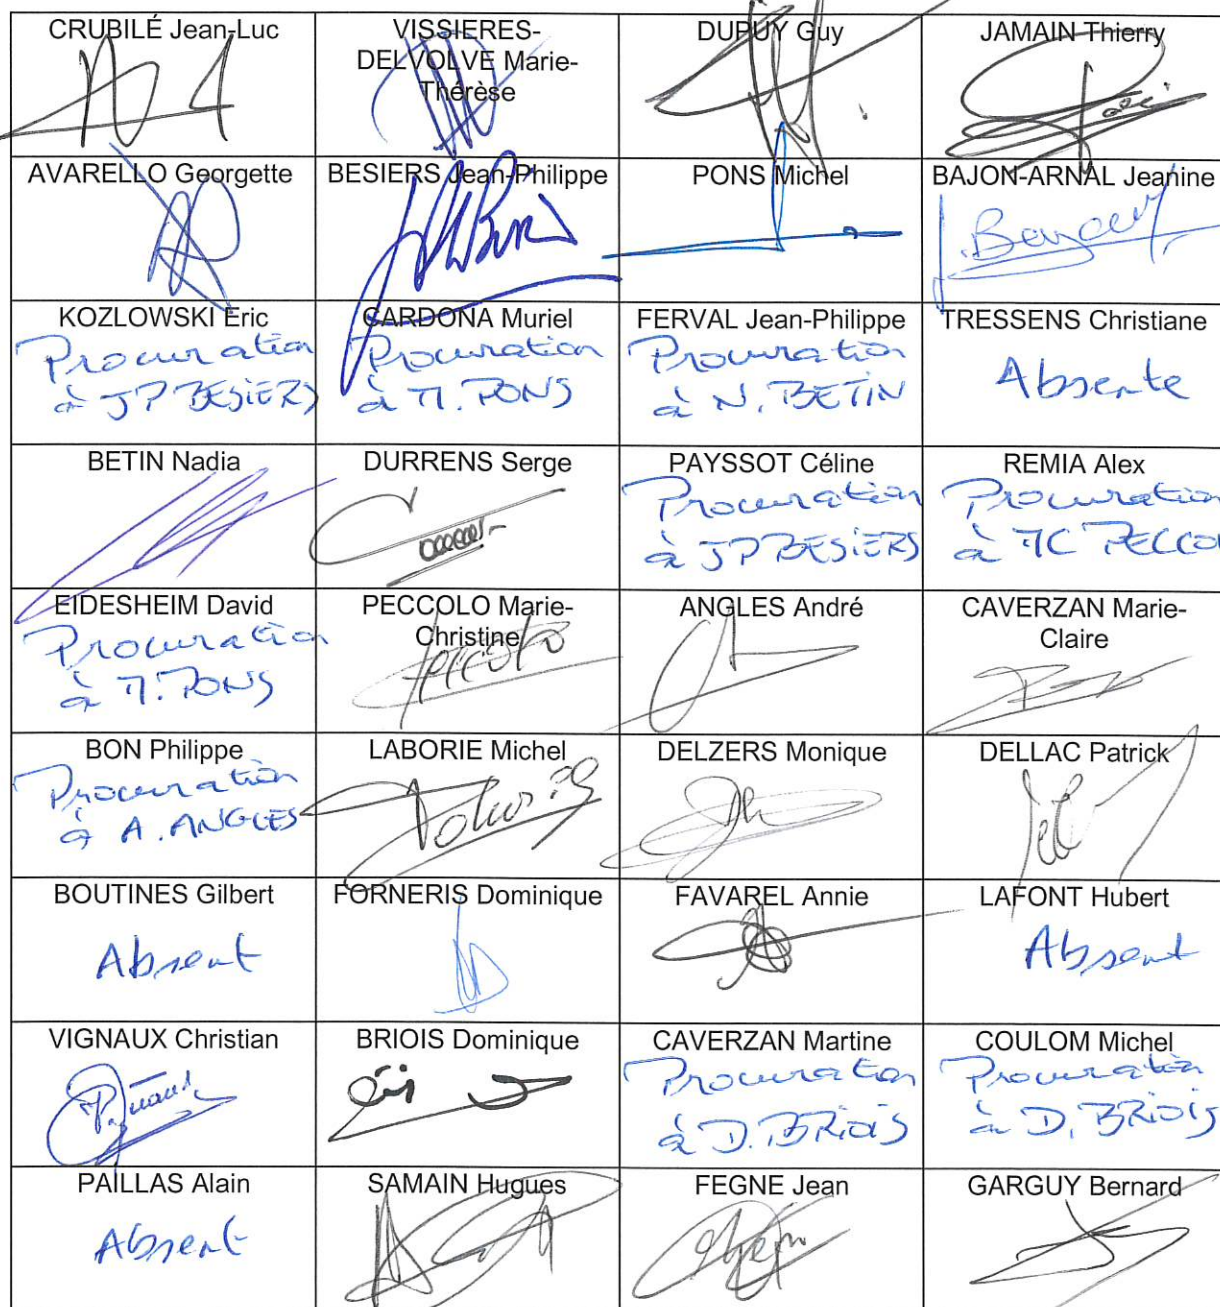 CRUBILÉ Jean-Luc
VISSIERES-
DELVOLVE Marie-
Thérèse
DUPUY Guy
JAMAIN Thierry
AVARELLO Georgette
BESIERS Jean-Philippe
PONS Michel
BAJON-ARNAL Jeanine
KOZLOWSKI Eric
Procuration
à JP BESIERS
CARDONA Muriel
Procuration
à M. PONS
FERVAL Jean-Philippe
Procuration
à N. BETIN
TRESSENS Christiane
Absente
BETIN Nadia
DURRENS Serge
PAYSSOT Céline
Procuration
à JP BESIERS
REMIA Alex
Procuration
à MC PECCOL
EIDESHEIM David
Procuration
à M. PONS
PECCOLO Marie-
Christine
ANGLES André
CAVERZAN Marie-
Claire
BON Philippe
Procuration
à A. ANGLES
LABORIE Michel
DELZERS Monique
DELLAC Patrick
BOUTINES Gilbert
Absent
FORNERIS Dominique
FAVAREL Annie
LAFONT Hubert
Absent
VIGNAUX Christian
BRIOIS Dominique
CAVERZAN Martine
Procuration
à D. BRIOIS
COULOM Michel
Procuration
à D. BRIOIS
PAILLAS Alain
Absent
SAMAIN Hugues
FEGNE Jean
GARGUY Bernard